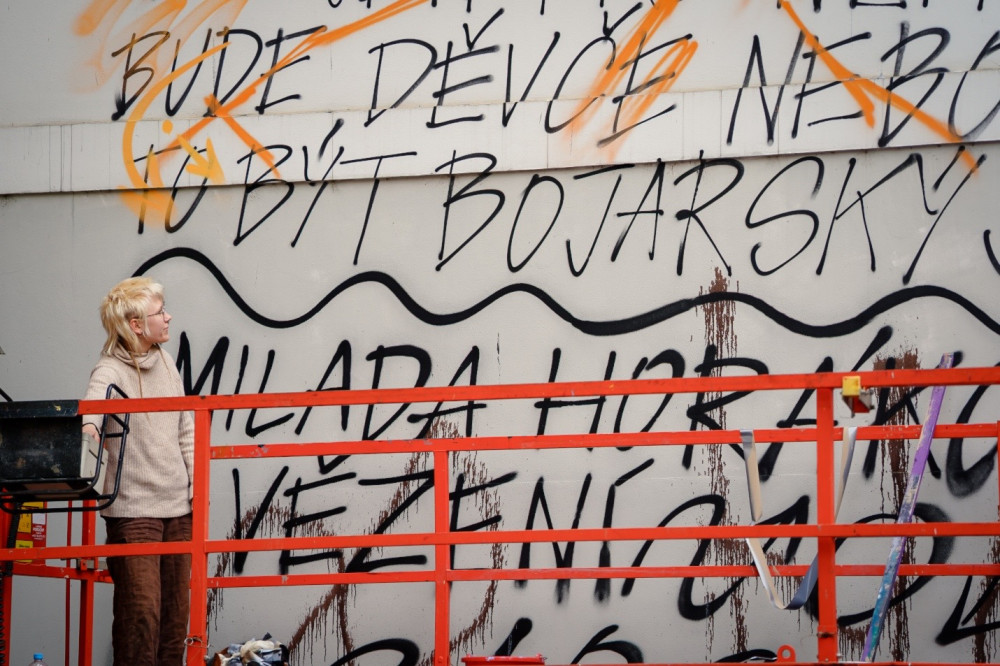 BUDE DĚVČE NEBO
TO BÝT BOJARSKÝ
MILADA HORÁKO
VĚZENÍ